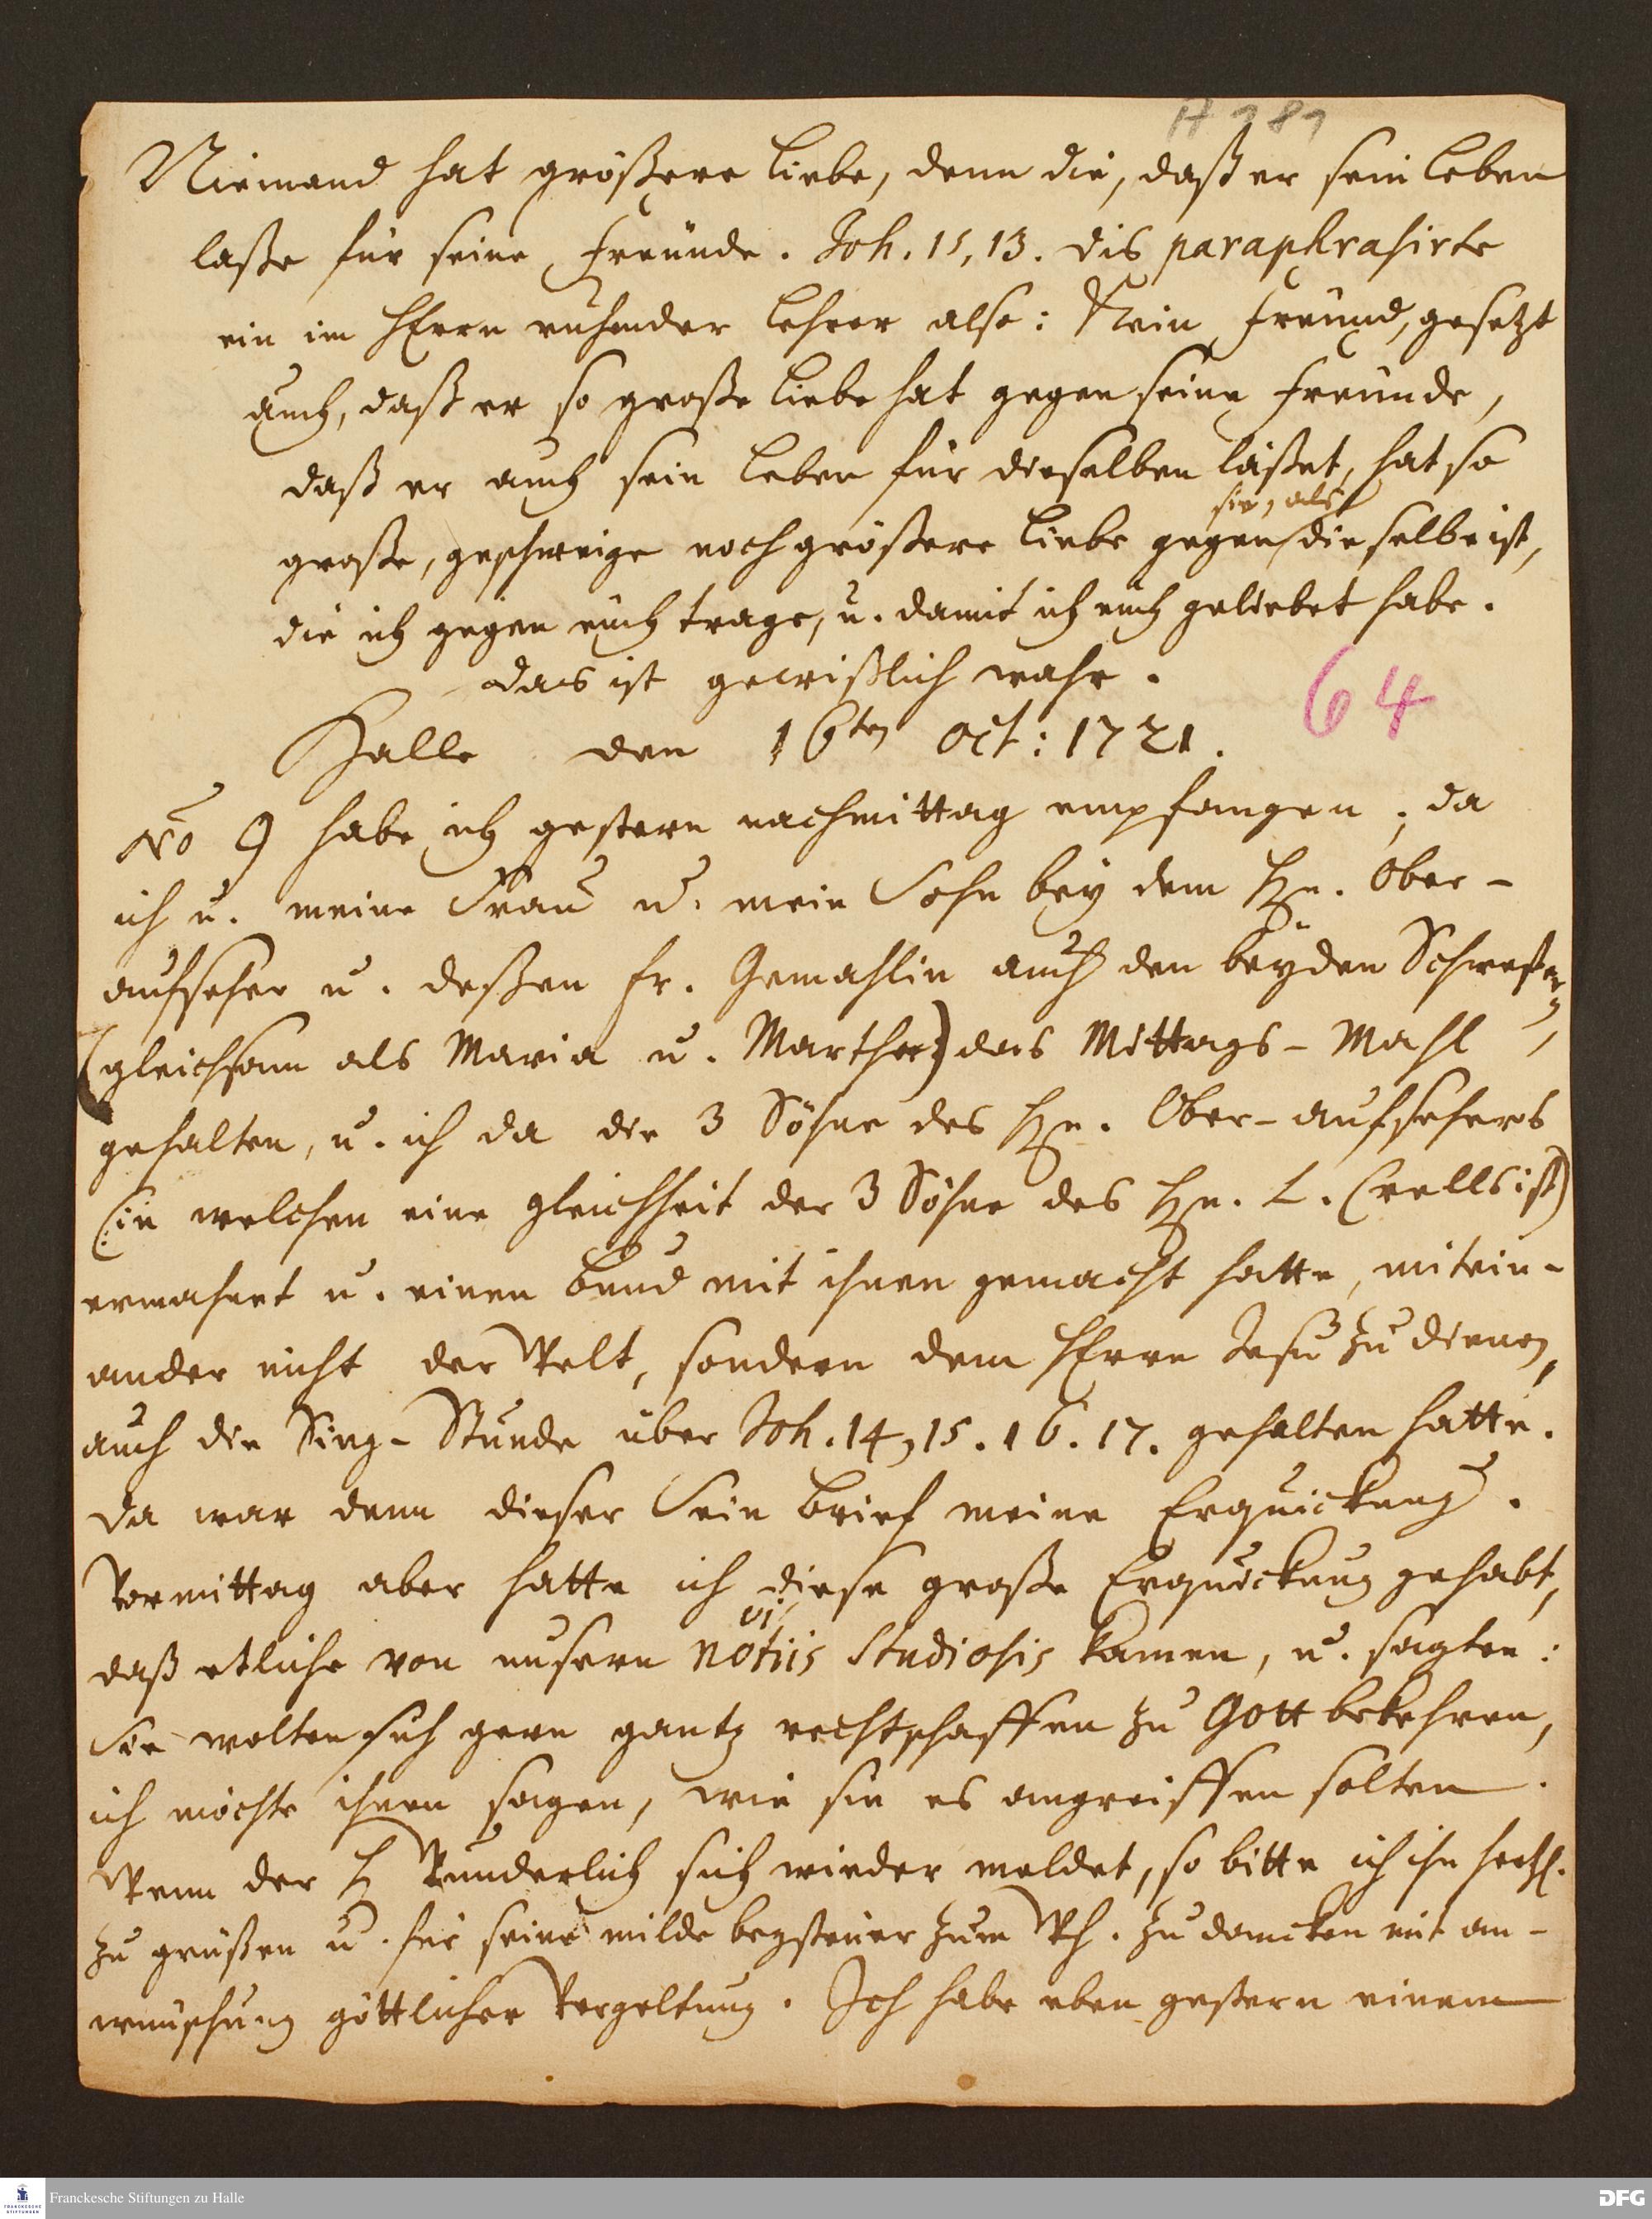 A 189
Niemand hat größere Liebe, denn die, daß er sein Leben
laße für seine Freunde. Joh. 15, 13. dis paraphrasirte
ein im HErrn ruhender Lehrer also: Kein Freund, gesetzt
auch, daß er so große Liebe hat gegen seine Freunde,
daß er auch sein Leben für dieselben läßet, hat so
sie, als
große, geschweige noch größere Liebe gegen dieselbe ist,
die ich gegen euch trage, u. damit ich euch geliebet habe.
das ist gewißlich wahr.
64
Halle den 16ten Oct: 1721.
No 9 habe ich gestern nachmittag empfangen, da
ich u. meine Frau u. mein Sohn bey dem Hn. Ober-
aufseher u. deßen Fr. Gemahlin auch den beyden Schwestern
(gleichsam als Maria u. Martha) das Mittags-Mahl
gehalten, u. ich da die 3 Söhne des Hn. Ober-aufsehers
(in welchen eine gleichheit der 3 Söhne des Hn. L. Crells ist)
ermahnet u. einen Bund mit ihnen gemacht hatte, mitein-
ander nicht der Welt, sondern dem HErrn Jesu zu dienen,
auch die Sing-Stunde über Joh. 14, 15. 16. 17. gehalten hatte.
da war denn dieser Sein Brief meine Erquickung.
Vormittag aber hatte ich diese große Erquickung gehabt,
daß etliche von unsern notiis Studiosis kamen, u. sagten:
Sie wolten sich gern gantz rechtschaffen zu Gott bekehren,
ich möchte ihnen sagen, wie sie es angreiffen solten.
Wenn der H Wunderlich sich wieder meldet, so bitte ich ihn hertzl.
zu grüßen u. für seine milde beysteuer zum Wh. zu dancken mit an-
wünschung göttlicher Vergeltung. Ich habe eben gestern einem
Franckesche Stiftungen zu Halle
DFG